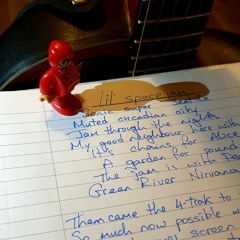 lil' space jam
Sonic super Seattle
Muted circadian city
Jam through the nights
My good neighbour here with
Live chains for Alice
A garden for sound
the jam is with
Green River Nirvana
Then came the 4-trak to
So much now possible w
screen